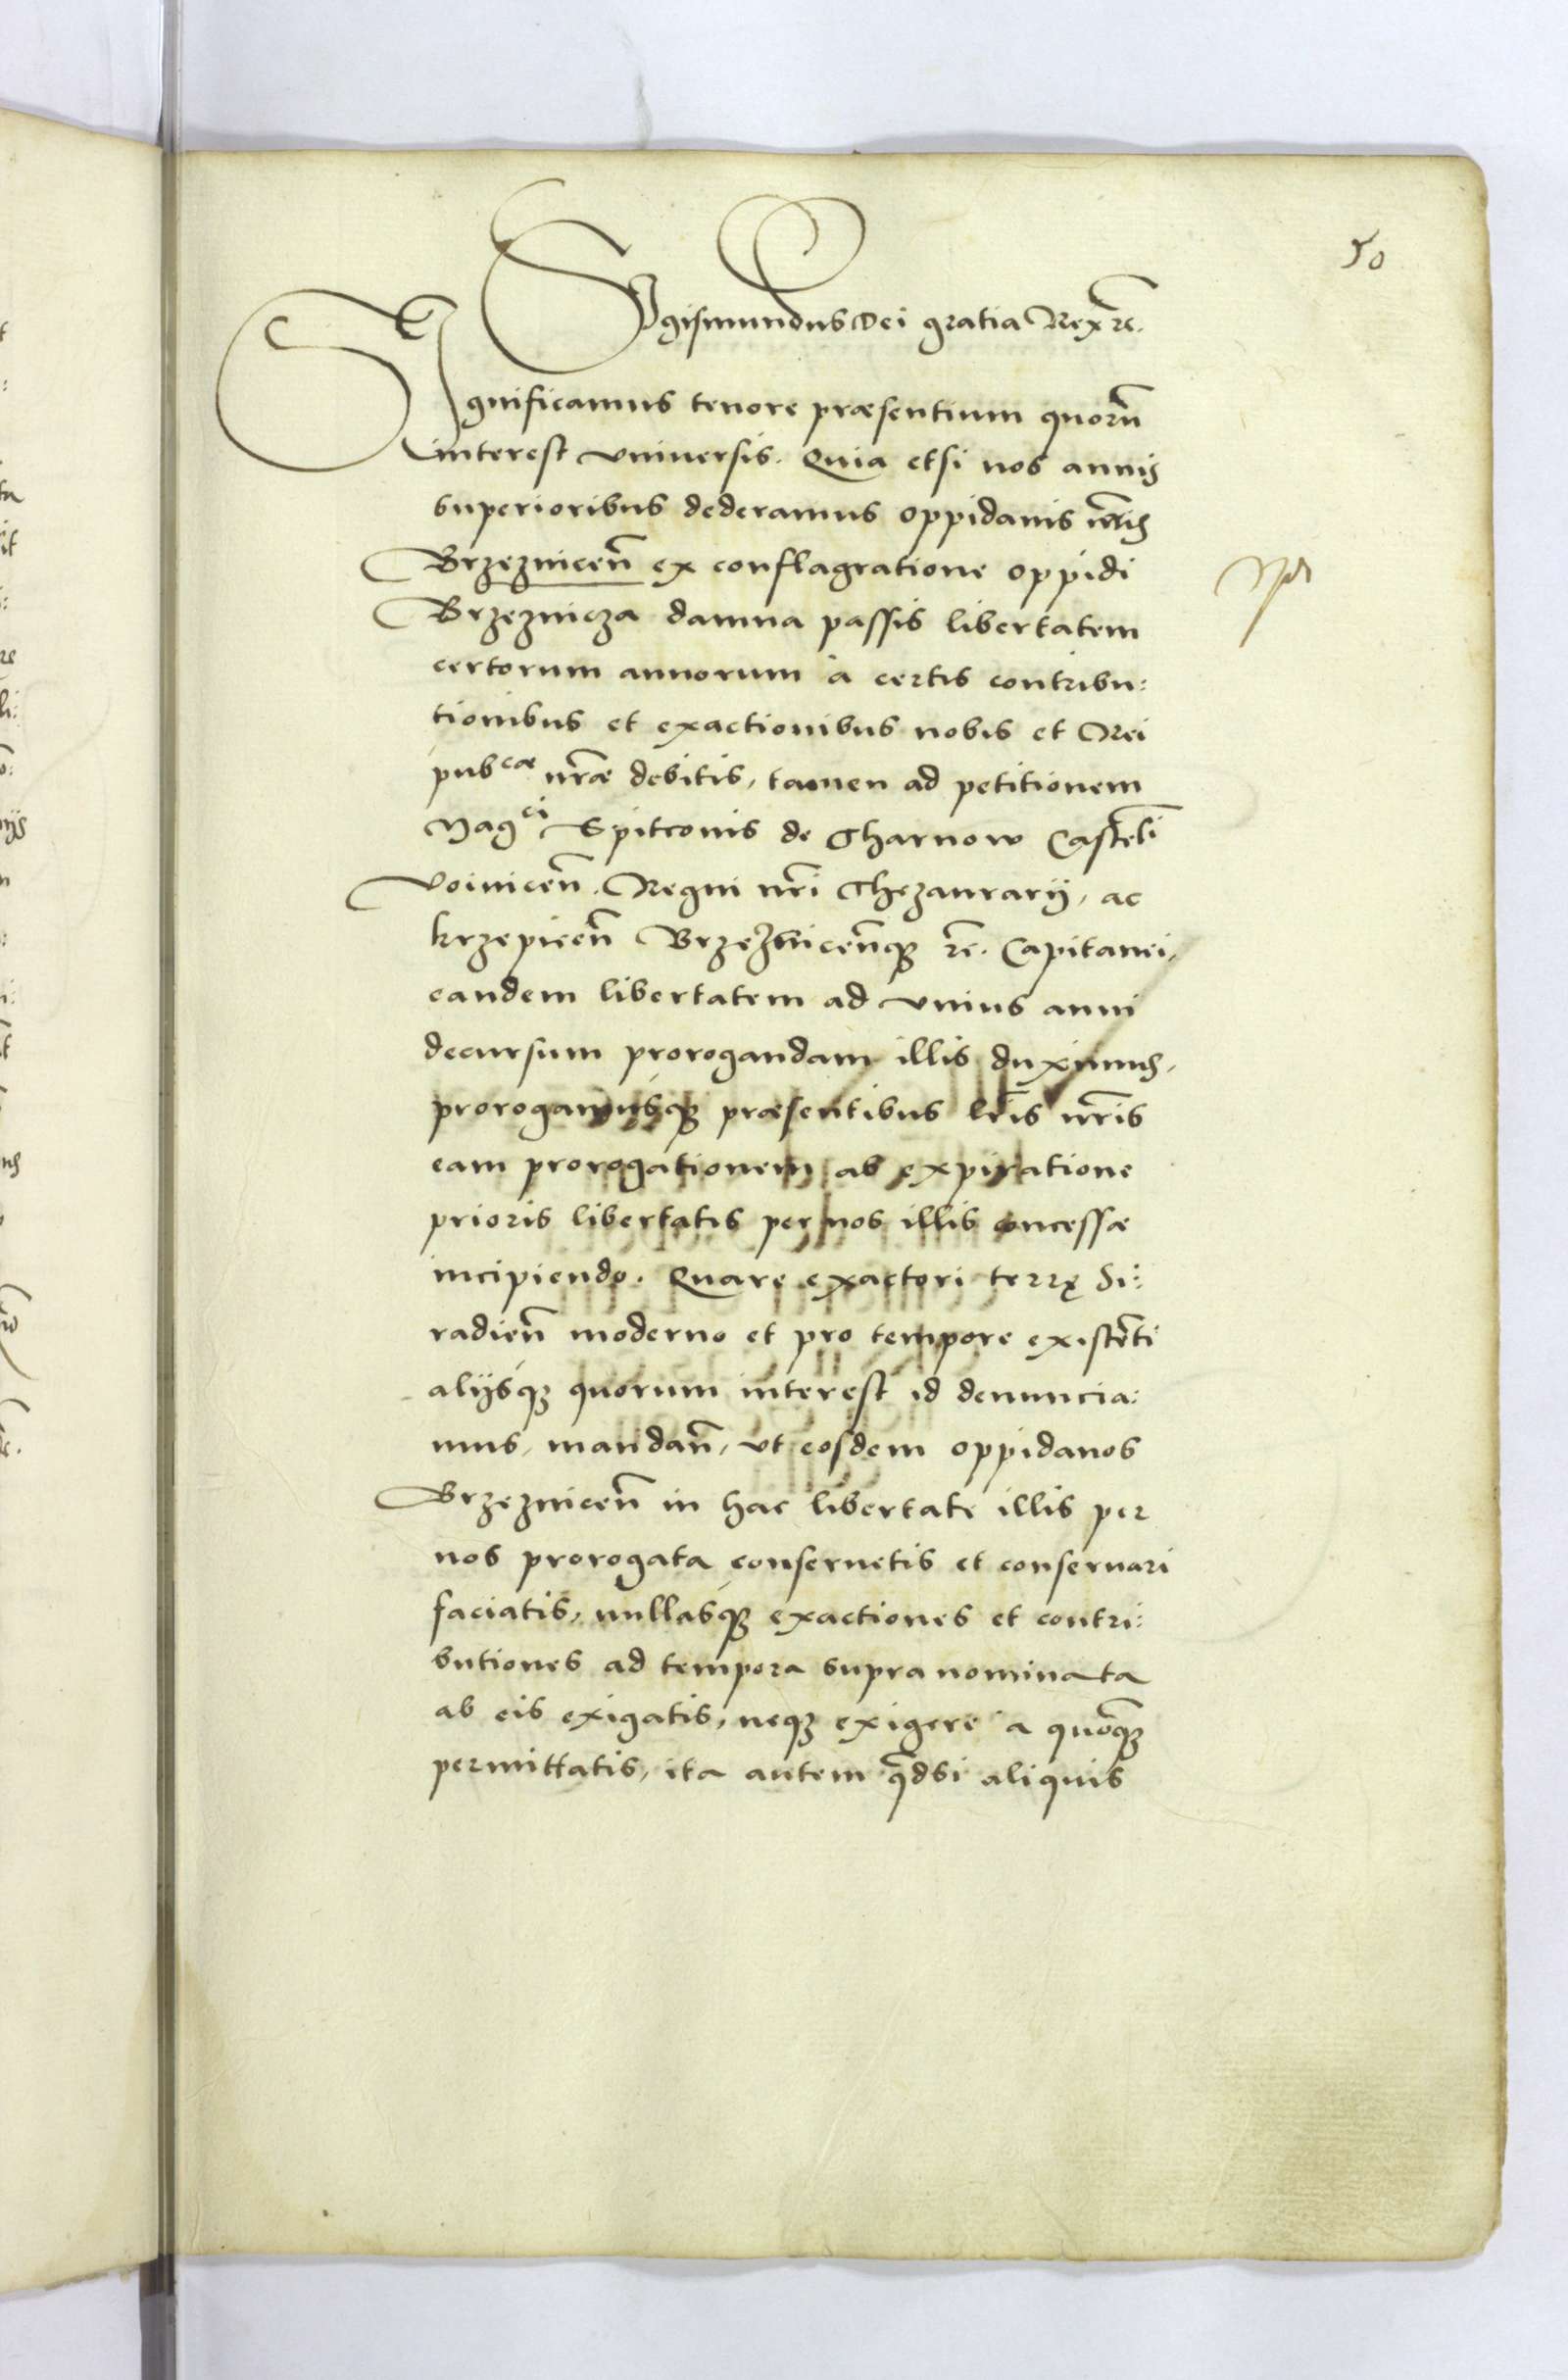 50
Sigismundus Dei gratia Rex etc.
Significamus tenore præsentium quorũ
interest vniuersis. Quia etsi nos annis
superioribus dederamus oppidanis nr̃is
Brzeznicen̄ ex conflagratione oppidi
Brzeznicza damna passis libertatem
certorum annorum à certis contribu:
tionibus et exactionibus nobis et Rei
pubcæ nr̃æ debitis, tamen ad petitionem
Magci Spitconis de Tharnow Castelī
Voinicen̄. Regni nr̃i Thezaurarij, ac
krzepicen̄ Brzeznicen̄q̧ etc. Capitanei,
eandem libertatem ad vnius anni
decursum prorogandam illis duximus,
prorogamusq̧ præsentibus lr̃is nr̃is
eam prorogationem ab expiratione
prioris libertatis per nos illis concessæ
incipiendo. Quare exactori terrę Si:
radien̄ moderno et pro tempore existēti
alijsq̧ quorum interest id denuncia:
mus, mandan̄, vt eosdem oppidanos
Brzeznicen̄ in hac libertate illis per
nos prorogata conseruetis et conseruari
faciatis, nullasq̧ exactiones et contri:
butiones ad tempora supra nominata
ab eis exigatis, neq̧ exigere a quoq̧
permittatis, ita autem q̃dsi aliquis